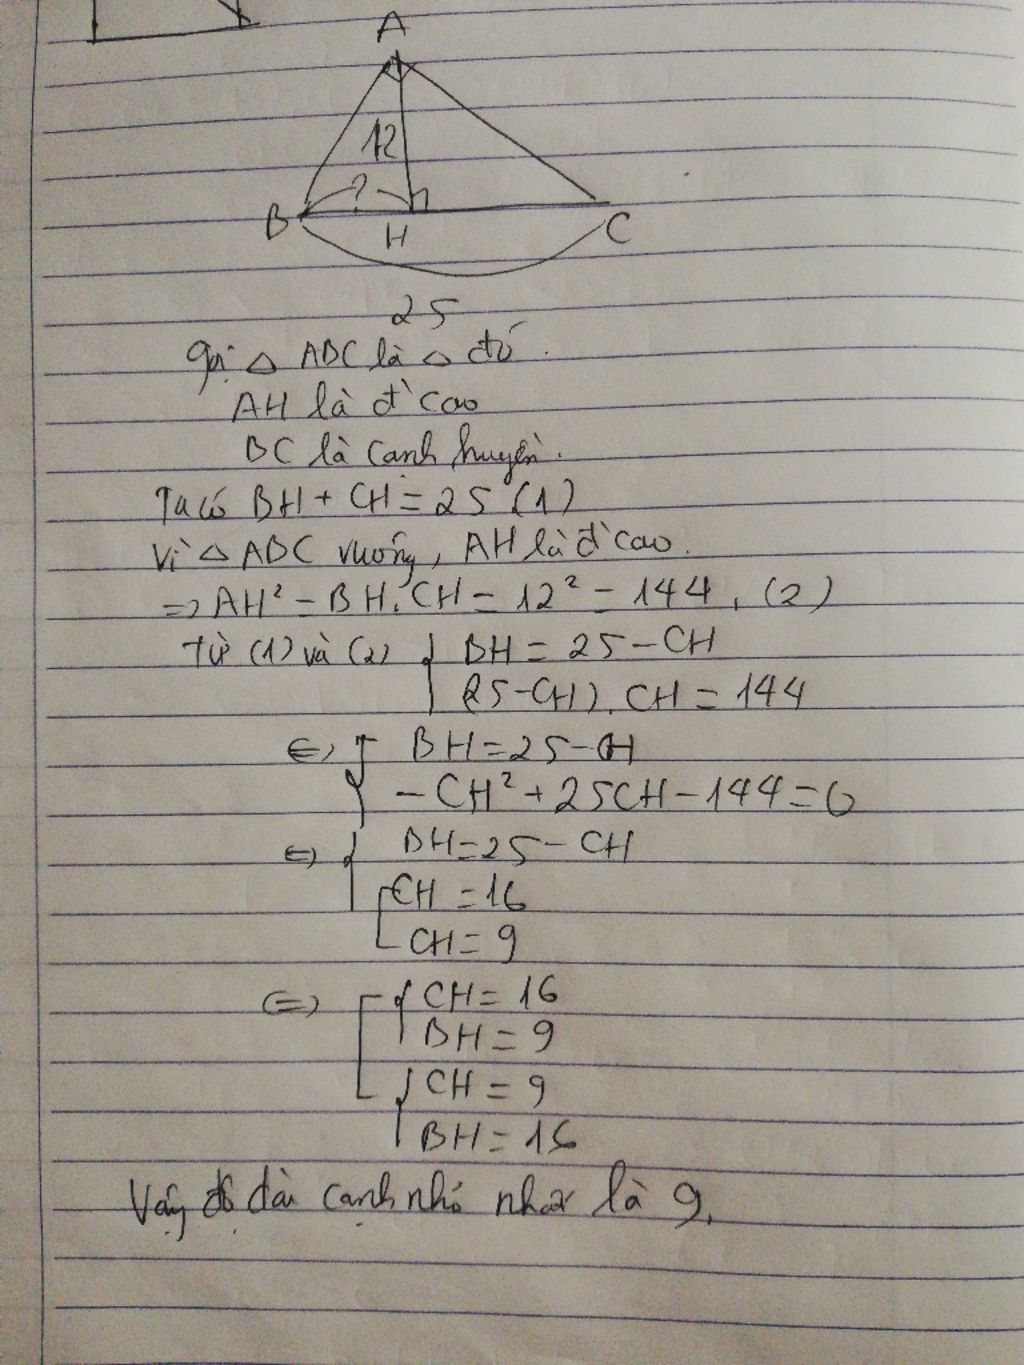 A
12
?
B
H
C
25
Gọi △ ABC là △ đó.
AH là đ' cao
BC là cạnh huyền.
Ta có BH + CH = 25 (1)
Vì △ ABC vuông, AH là đ' cao.
=> AH² = BH.CH = 12² = 144. (2)
Từ (1) và (2) { BH = 25 - CH
(25-CH). CH = 144
<=> { BH = 25 - CH
- CH² + 25CH - 144 = 0
<=> { BH = 25 - CH
[ CH = 16
CH = 9
<=> [ { CH = 16
BH = 9
{ CH = 9
BH = 16
Vậy độ dài cạnh nhỏ nhất là 9.